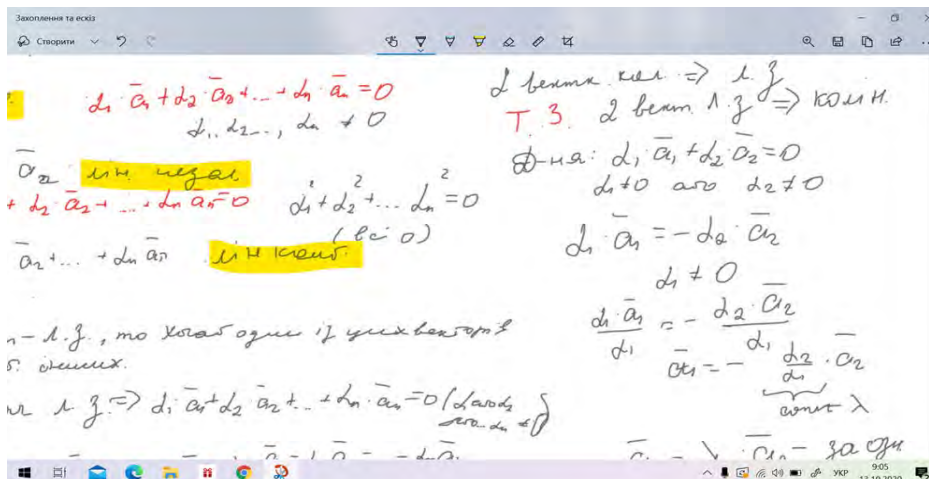 Захоплення та ескіз
Створити
α₁ · a̅₁ + α₂ · a̅₂ + ... + αₙ · a̅ₙ = 0
α₁, α₂ ..., αₙ ≠ 0
a̅ₙ лін. незал.
+ α₂ · a̅₂ + ... + αₙ a̅ₙ = 0
α₁² + α₂² + ... αₙ² = 0
(всі 0)
a̅₂ + ... + αₙ a̅ₙ лін комб.
n – л.з., то хоча б один із цих векторів
інших.
л.з. => α₁ · a̅₁ + α₂ · a̅₂ + ... + αₙ · a̅ₙ = 0
2 вект. кол => л.з
Т.3. 2 вект. л.з => колін.
Д-ня: α₁ · a̅₁ + α₂ · a̅₂ = 0
α₁ ≠ 0 або α₂ ≠ 0
α₁ · a̅₁ = – α₂ · a̅₂
α₁ ≠ 0
α₁ · a̅₁ / α₁ = – α₂ · a̅₂ / α₁
a̅₁ = – α₂ / α₁ · a̅₂
const λ
за озн
УКР
9:05
12.10.2020